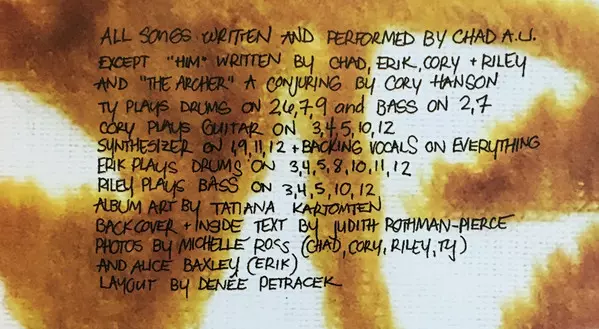 ALL SONGS WRITTEN AND PERFORMED BY CHAD A.U.
EXCEPT "HIM" WRITTEN BY CHAD, ERIK, CORY + RILEY
AND "THE ARCHER" A CONJURING BY CORY HANSON
TY PLAYS DRUMS ON 2,6,7,9 and BASS ON 2,7
CORY PLAYS GUITAR ON 3,4,5,10,12
SYNTHESIZER ON 1,9,11,12 + BACKING VOCALS ON EVERYTHING
ERIK PLAYS DRUMS ON 3,4,5,8,10,11,12
RILEY PLAYS BASS ON 3,4,5,10,12
ALBUM ART BY TATIANA KARTOMTEN
BACK COVER + INSIDE TEXT BY JUDITH ROTHMAN-PIERCE
PHOTOS BY MICHELLE ROSS (CHAD, CORY, RILEY, TY)
AND ALICE BAXLEY (ERIK)
LAYOUT BY DENÉE PETRACEK